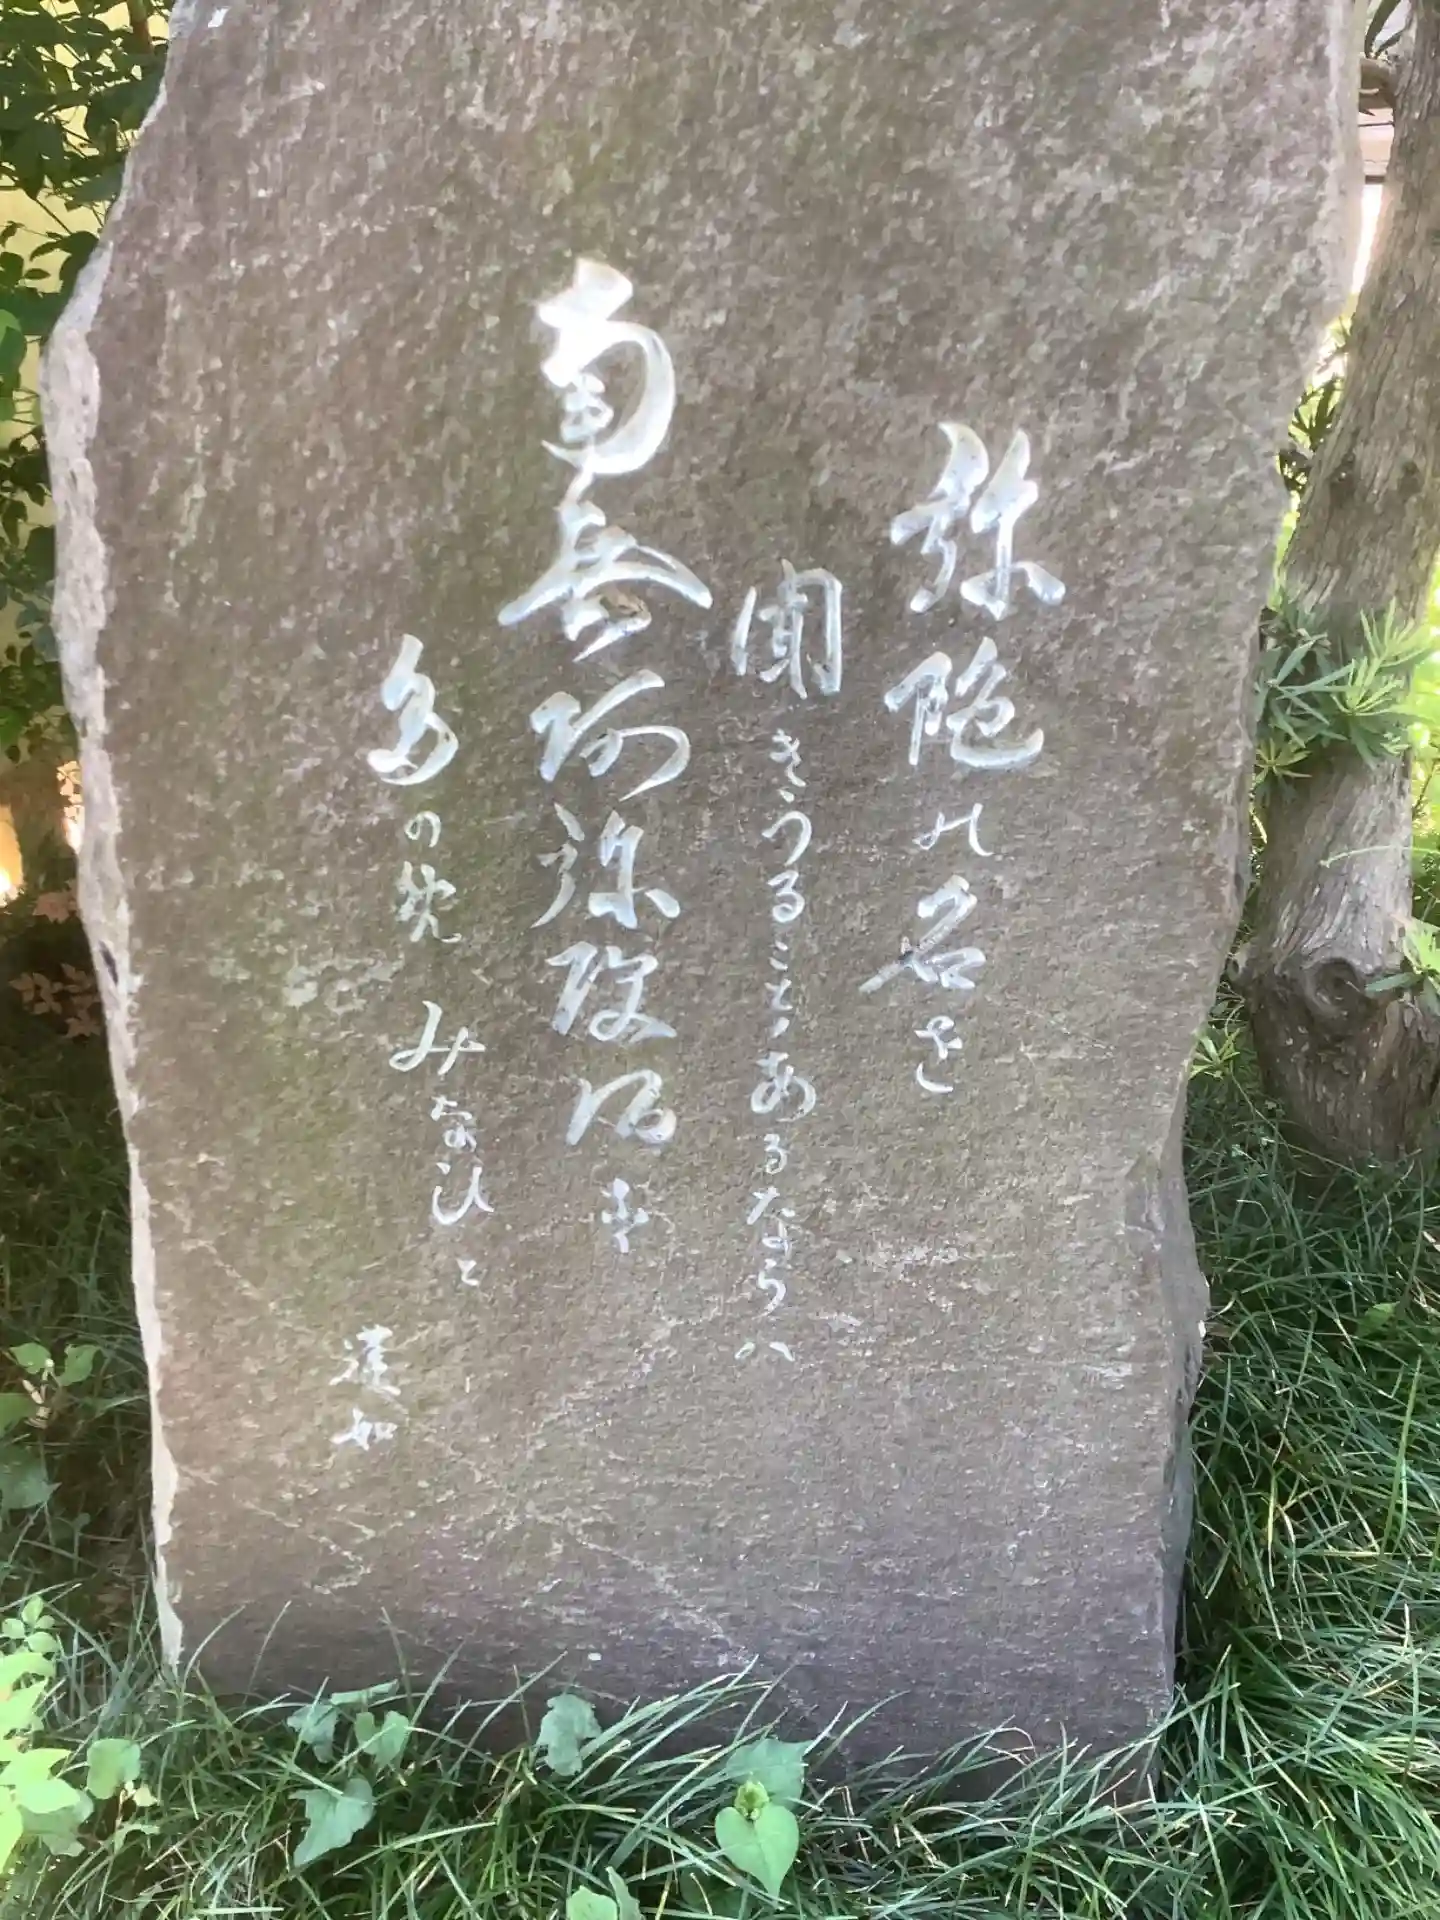 弥陀の名を
聞きうることのあるならハ
南無阿弥陀仏と
多の免みなひと
蓮如